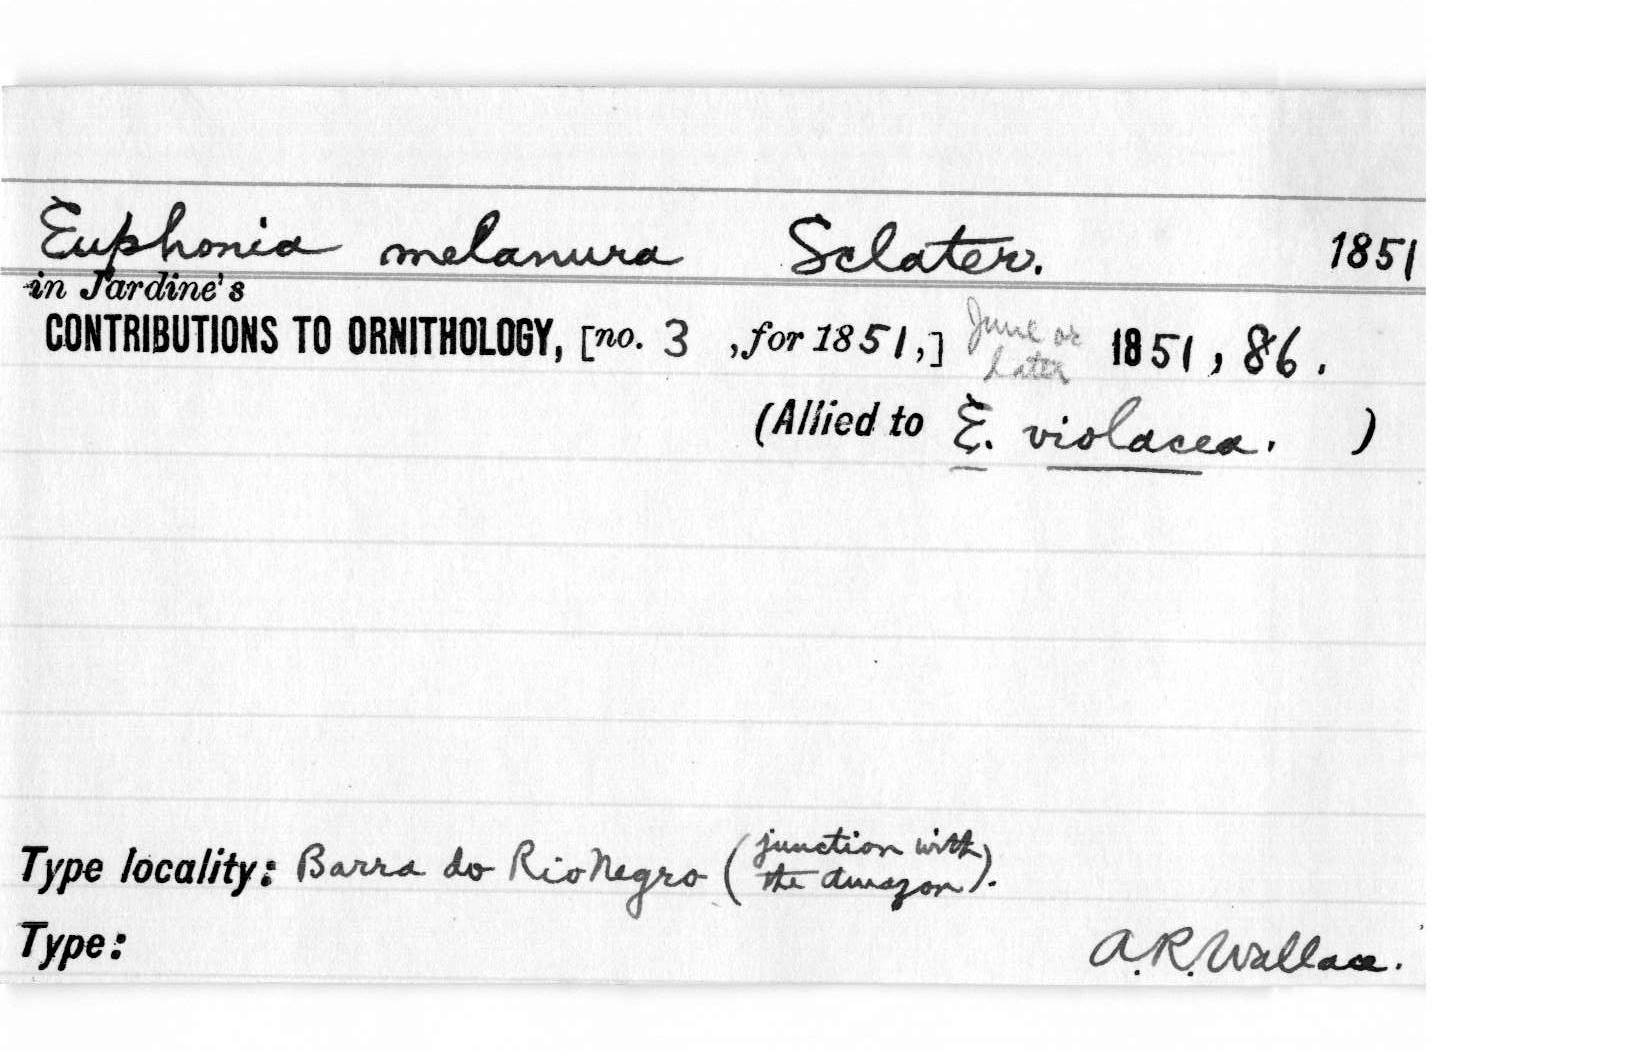 Euphonia melanura Sclater. 1851
in Jardine's
CONTRIBUTIONS TO ORNITHOLOGY, [no. 3 , for 1851,] June or later 1851, 86.
(Allied to E. violacea. )
Type locality: Barra do Rio Negro (junction with the Amazon).
Type: A.R. Wallace.